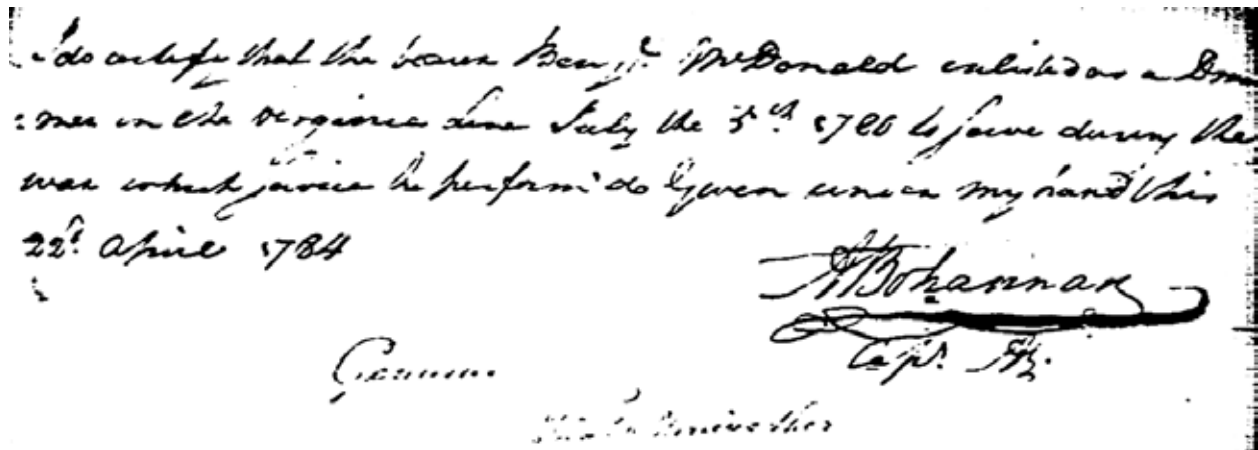 I do certify that the bearer Benj.n McDonald enlisted as a Drum
mer in the Virginia Line July the 5th 1780 to serve during the
war which service he perform'd Given under my hand this
22d. April 1784
A Bohannan
Capt.
Genuine
Meriwether